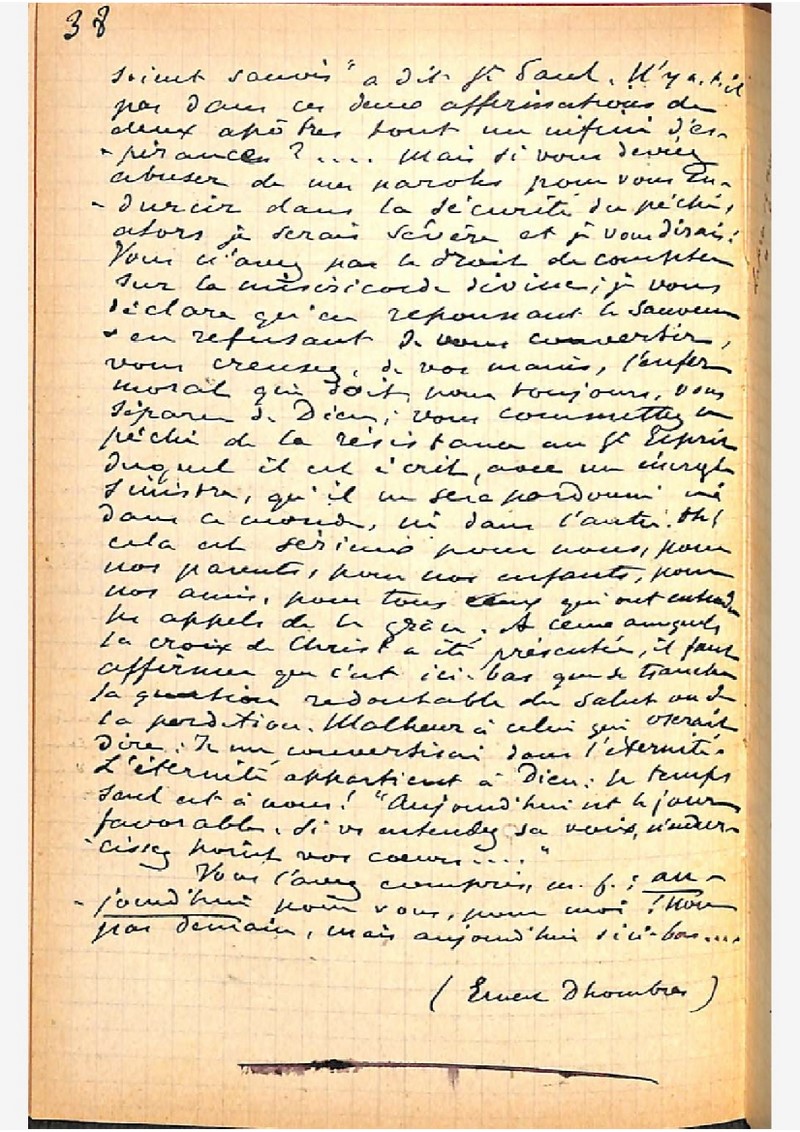 38
soient sauvés" a dit St Paul. N'y a-t-il
pas dans ces deux affirmations de
deux apôtres tout un infini d'es-
-pérances ?.... Mais si vous deviez
abuser de mes paroles pour vous en-
-durcir dans la sécurité du péché,
alors je serais sévère et je vous dirais:
Vous n'avez pas le droit de compter
sur la miséricorde divine; je vous
déclare qu'en repoussant le Sauveur
en refusant de vous convertir,
vous creusez, de vos mains, l'enfer
moral qui doit, pour toujours, vous
séparer de Dieu; vous commettez un
péché de la résistance au St Esprit
duquel il est écrit, avec un
sinistre, qu'il ne sera pardonné ni
dans ce monde, ni dans l'autre. Oh!
cela est sérieux pour nous, pour
nos parents, pour nos enfants, pour
nos amis, pour tous ceux qui ont entendu
les appels de la grâce. A ceux auxquels
la croix de Christ a été présentée, il faut
affirmer que c'est ici-bas que se tranche
la question redoutable du salut ou de
la perdition. Malheur à celui qui oserait
dire: Je me convertirai dans l'éternité.
L'éternité appartient à Dieu: le temps
seul est à nous! "Aujourd'hui est le jour
favorable. Si vs entendez sa voix, n'endur-
cissez point vos cœurs...."
Vous l'avez compris, m. f.: au-
-jourd'hui pour vous, pour moi! non
pas demain, mais aujourd'hui ici-bas....
(Ernest Dhombres)